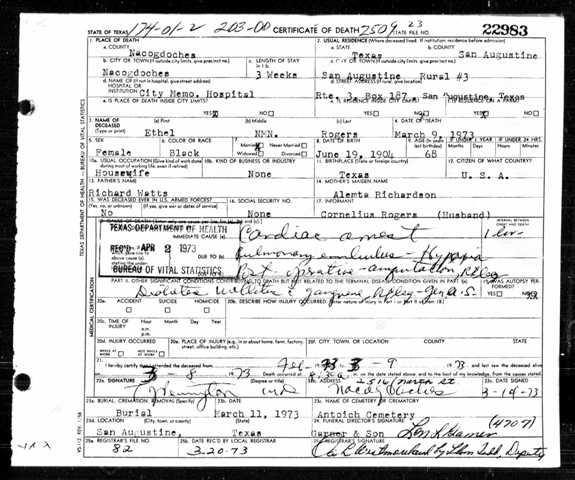 STATE OF TEXAS 174-01-2 203-00 CERTIFICATE OF DEATH 2509 23 STATE FILE NO. 22983
1. PLACE OF DEATH
a. COUNTY
Nacogdoches
2. USUAL RESIDENCE (Where deceased lived. If institution: residence before admission)
a. STATE
Texas
b. COUNTY
San Augustine
b. CITY OR TOWN (If outside city limits, give precinct no.)
Nacogdoches
c. LENGTH OF STAY in 1 b.
3 Weeks
c. CITY OR TOWN (If outside city limits, give precinct no.)
San Augustine Rural #3
d. NAME OF (If not in hospital, give street address)
HOSPITAL OR
INSTITUTION City Memo. Hospital
d. STREET ADDRESS (If rural, give location)
Rte. 3, Box 187, San Augustine, Texas
e. IS PLACE OF DEATH INSIDE CITY LIMITS?
YES NO
e. IS RESIDENCE INSIDE CITY LIMITS?
YES NO
f. IS RESIDENCE ON A FARM?
YES NO
3. NAME OF DECEASED
(a) First
Ethel
(b) Middle
NMN.
(c) Last
Rogers
4. DATE OF DEATH
March 9, 1973
5. SEX
Female
6. COLOR OR RACE
Black
7. Married Never Married
Widowed Divorced
8. DATE OF BIRTH
June 19, 1904
9. AGE (In years last birthday)
68
IF UNDER 1 YEAR
Months Days
IF UNDER 24 HRS.
Hours Min.
10a. USUAL OCCUPATION (Give kind of work done during most of working life, even if retired)
Housewife
10b. KIND OF BUSINESS OR INDUSTRY
None
11. BIRTHPLACE (State or foreign country)
Texas
12. CITIZEN OF WHAT COUNTRY?
U. S. A.
13. FATHER'S NAME
Richard Watts
14. MOTHER'S MAIDEN NAME
Alenta Richardson
15. WAS DECEASED EVER IN U.S. ARMED FORCES?
(Yes, no, or unknown) (If yes, give war or dates of service)
No
16. SOCIAL SECURITY NO.
None
17. INFORMANT
Cornelius Rogers (Husband)
INTERVAL BETWEEN ONSET AND DEATH
TEXAS DEPARTMENT OF HEALTH
REC'D APR 2 1973
BUREAU OF VITAL STATISTICS
IMMEDIATE CAUSE (a) Cardiac arrest
DUE TO (b) Pulmonary embolus
DUE TO (c) Post operative - amputation, R leg
PART II. OTHER SIGNIFICANT CONDITIONS CONTRIBUTING TO DEATH BUT NOT RELATED TO THE TERMINAL DISEASE CONDITION GIVEN IN PART I (a)
Diabetes Mellitus
19. WAS AUTOPSY PERFORMED?
YES NO
20a. ACCIDENT SUICIDE HOMICIDE
20b. DESCRIBE HOW INJURY OCCURRED. (Enter nature of injury in Part I or Part II of item 18.)
20c. TIME OF INJURY
Hour Month Day Year
a.m.
p.m.
20d. INJURY OCCURRED
WHILE AT WORK NOT WHILE AT WORK
20e. PLACE OF INJURY (e.g., in or about home, farm, factory, street, office building, etc.)
20f. CITY, TOWN, OR LOCATION COUNTY STATE
21. I hereby certify that I attended the deceased from
and last saw the deceased alive on
3 - 8 1973 Death occurred at
on the date stated above; and to the best of my knowledge, from the causes stated.
22a. SIGNATURE (Degree or title)
MD
22b. ADDRESS
Nacogdoches
22c. DATE SIGNED
3-14-73
23a. BURIAL, CREMATION, REMOVAL (Specify)
Burial
23b. DATE
March 11, 1973
23c. NAME OF CEMETERY OR CREMATORY
Antoich Cemetery
23d. LOCATION (City, town, or county) (State)
San Augustine, Texas
24. FUNERAL DIRECTOR'S SIGNATURE (4707)
Garner & Son
25a. REGISTRAR'S FILE NO.
82
25b. DATE REC'D BY LOCAL REGISTRAR
3-20-73
25c. REGISTRAR'S SIGNATURE
Deputy
TEXAS DEPARTMENT OF HEALTH — BUREAU OF VITAL STATISTICS
MEDICAL CERTIFICATION